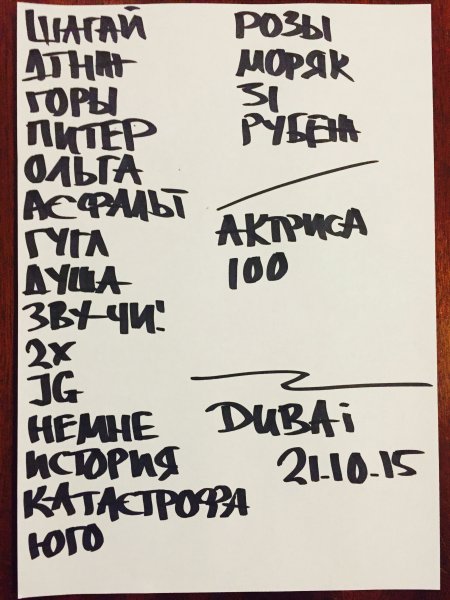 ШАГАЙ
АГНИЯ
ГОРЫ
ПИТЕР
ОЛЬГА
АСФАЛЬТ
ГУГЛ
ДУША
ЗВУЧИ!
2X
JG
НЕМНЕ
ИСТОРИЯ
КАТАСТРОФА
ЮГО
РОЗЫ
МОРЯК
31
РУБЕЖ
АКТРИСА
100
DUBAi
21.10.15